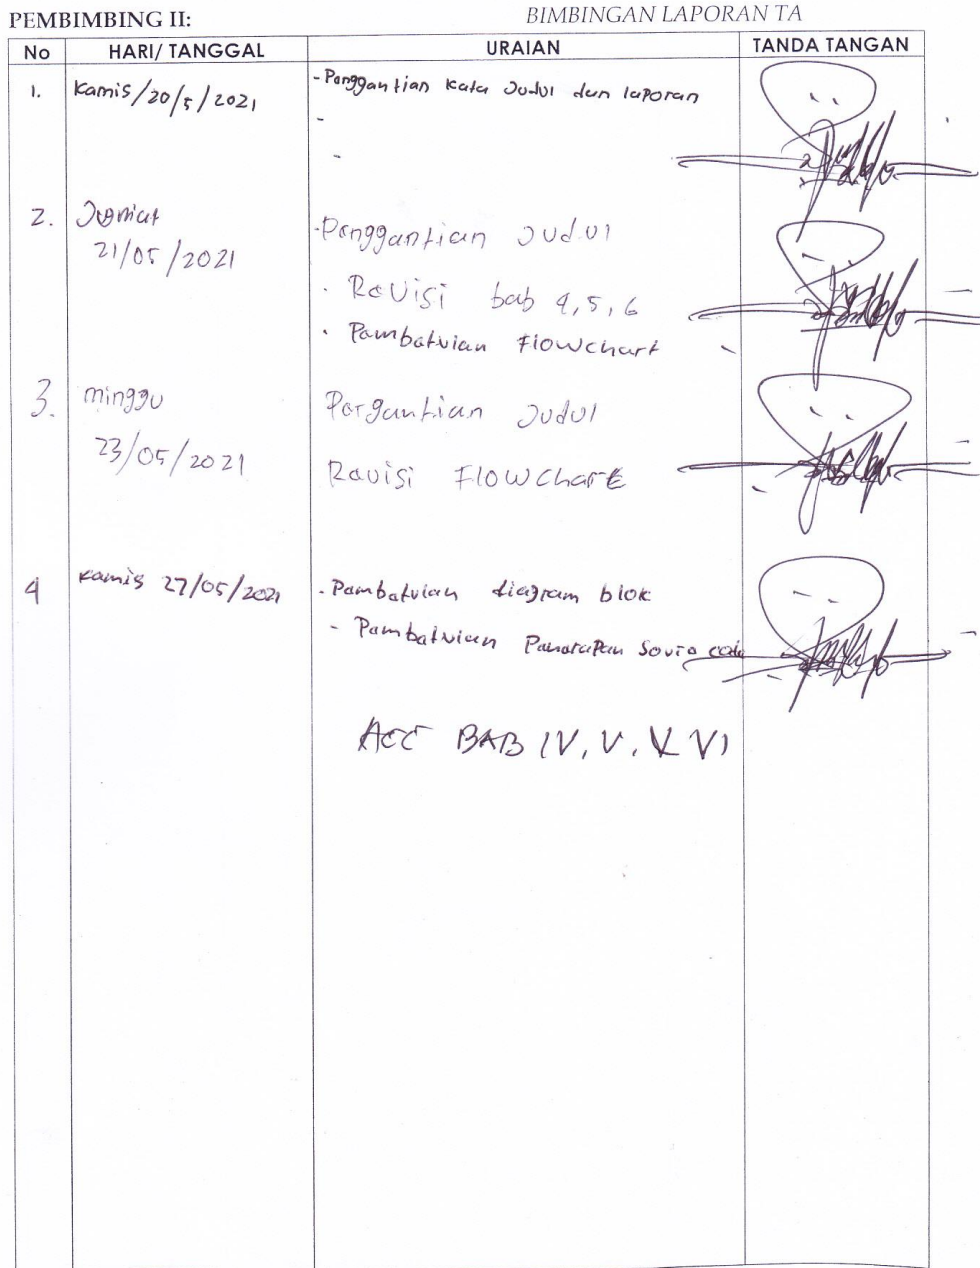 PEMBIMBING II:
BIMBINGAN LAPORAN TA
No HARI/ TANGGAL URAIAN TANDA TANGAN
1. Kamis/20/5/2021 - Penggantian kata Judul dan laporan
-
-
2. Jumiat - Penggantian Judul
21/05/2021
. Revisi bab 4, 5, 6
. Pembatuian Flowchart
3. minggu Pergantian Judul
23/05/2021 Revisi Flowchart
4 Kamis 27/05/2021 - Pembatuian diagram blok
- Pembatuian Penerapan code
ACC BAB IV, V, VI